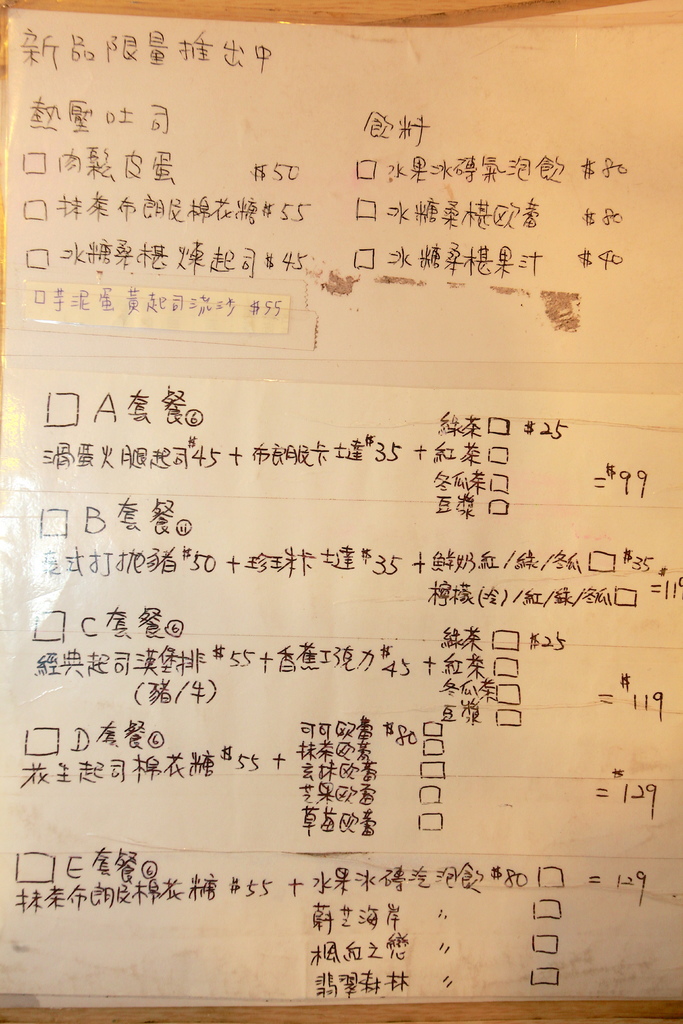 新品限量推出中
熱壓吐司
□ 肉鬆皮蛋 $50
□ 抹茶布朗尼棉花糖 $55
□ 冰糖桑椹煉起司 $45
□ 芋泥蛋黃起司流沙 $55
飲料
□ 水果冰磚氣泡飲 $80
□ 冰糖桑椹歐蕾 $80
□ 冰糖桑椹果汁 $40
□ A 套餐⑥
滑蛋火腿起司 $45 + 布朗尼卡士達 $35 + 綠茶 □ $25
紅茶 □
冬瓜茶 □
豆漿 □
= $99
□ B 套餐⑪
泰式打拋豬 $50 + 珍珠卡士達 $35 + 鮮奶紅/綠/冬瓜 □ $35
檸檬(冷)/紅/綠/冬瓜 □
= $119
□ C 套餐⑥
經典起司漢堡排 $55 + 香蕉巧克力 $45 + 綠茶 □ $25
(豬/牛)
紅茶 □
冬瓜茶 □
豆漿 □
= $119
□ D 套餐⑥
花生起司棉花糖 $55 + 可可歐蕾 $80 □
抹茶歐蕾 □
玄抹歐蕾 □
芒果歐蕾 □
草莓歐蕾 □
= $129
□ E 套餐⑥
抹茶布朗尼棉花糖 $55 + 水果冰磚汽泡飲 $80 □ = 129
蔚芝海岸 〃 □
楓紅之戀 〃 □
翡翠森林 〃 □